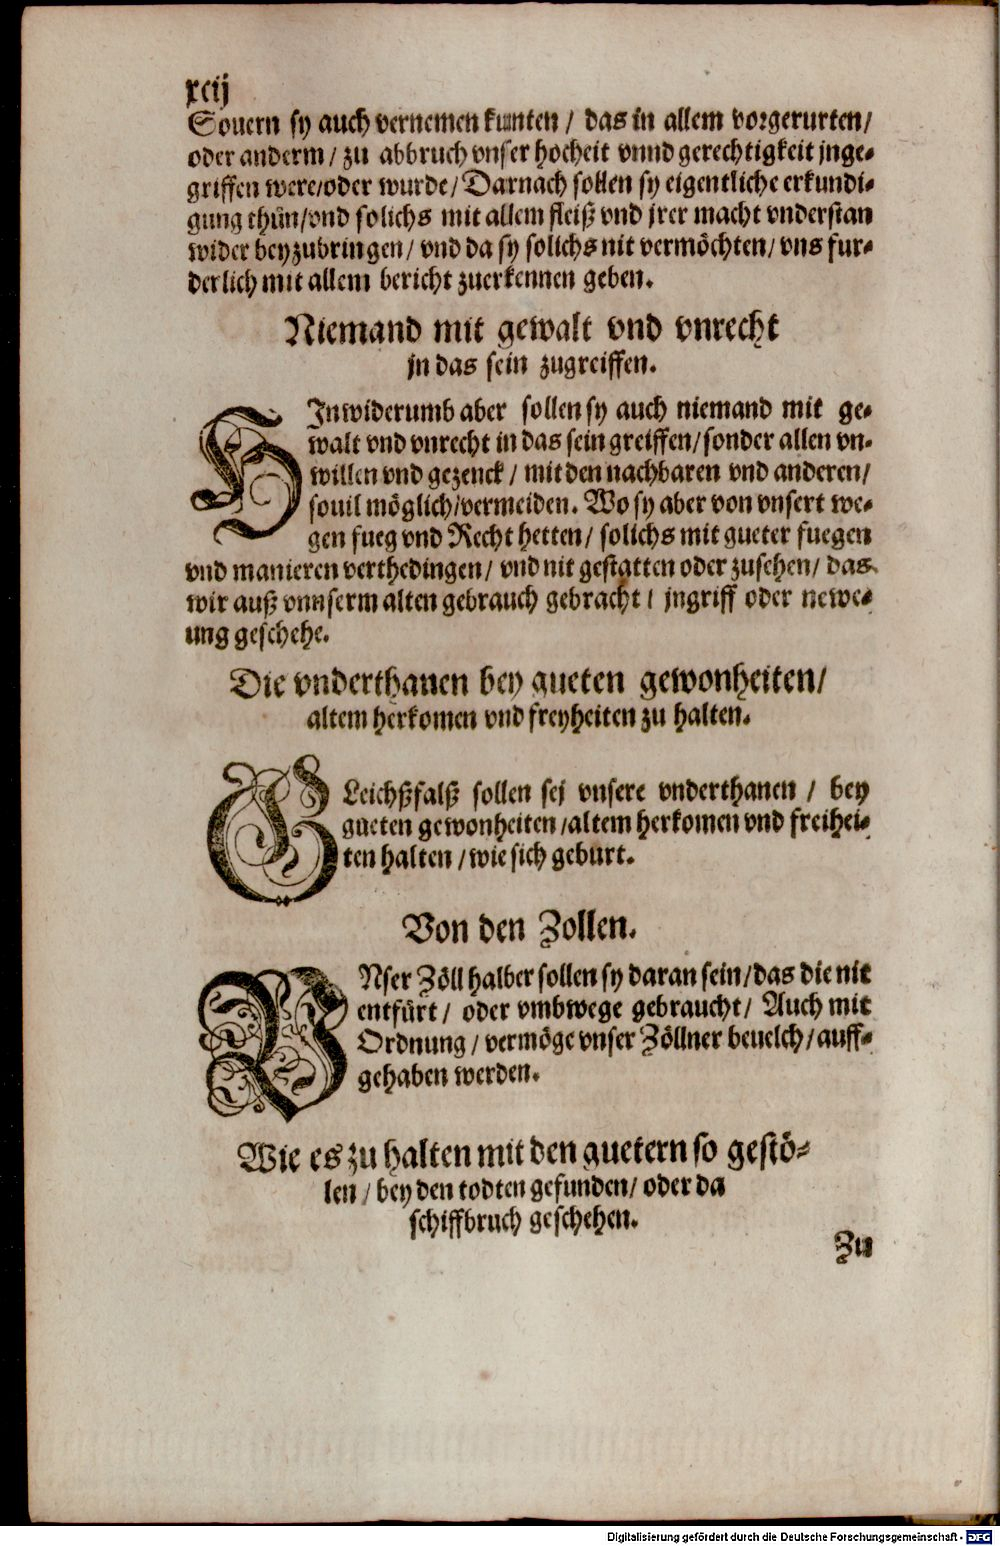 xcij
Souern sy auch vernemen kunten / das in allem vorgerurten /
oder anderm / zu abbruch vnser hocheit vnnd gerechtigkeit jnge-
griffen were/oder wurde / Darnach sollen sy eigentliche erkundi-
gung thůn/vnd solichs mit allem fleiß vnd jrer macht vnderstan
wider beyzubringen / vnd da sy solichs nit vermöchten / vns fur-
derlich mit allem bericht zuerkennen geben.
Niemand mit gewalt vnd vnrecht
jn das sein zugreiffen.
HJnwiderumb aber sollen sy auch niemand mit ge-
walt vnd vnrecht in das sein greiffen / sonder allen vn-
willen vnd gezenck / mit den nachbaren vnd anderen /
souil möglich/vermeiden. Wo sy aber von vnsert we-
gen fueg vnd Recht hetten / solichs mit gueter fuegen
vnd manieren verthedingen / vnd nit gestatten oder zusehen / das
wir auß vnnserm alten gebrauch gebracht / jngriff oder newe-
ung geschehe.
Die vnderthanen bey gueten gewonheiten /
altem herkomen vnd freyheiten zu halten.
GLeichßfalß sollen sej vnsere vnderthanen / bey
gueten gewonheiten / altem herkomen vnd freihei-
ten halten / wie sich geburt.
Von den Zollen.
VNser Zöll halber sollen sy daran sein / das die nit
entfürt / oder vmbwege gebraucht / Auch mit
Ordnung / vermöge vnser Zöllner beuelch / auff-
gehaben werden.
Wie es zu halten mit den guetern so gestö-
len / bey den todten gefunden / oder da
schiffbruch geschehen.
Zu
Digitalisierung gefördert durch die Deutsche Forschungsgemeinschaft - DFG